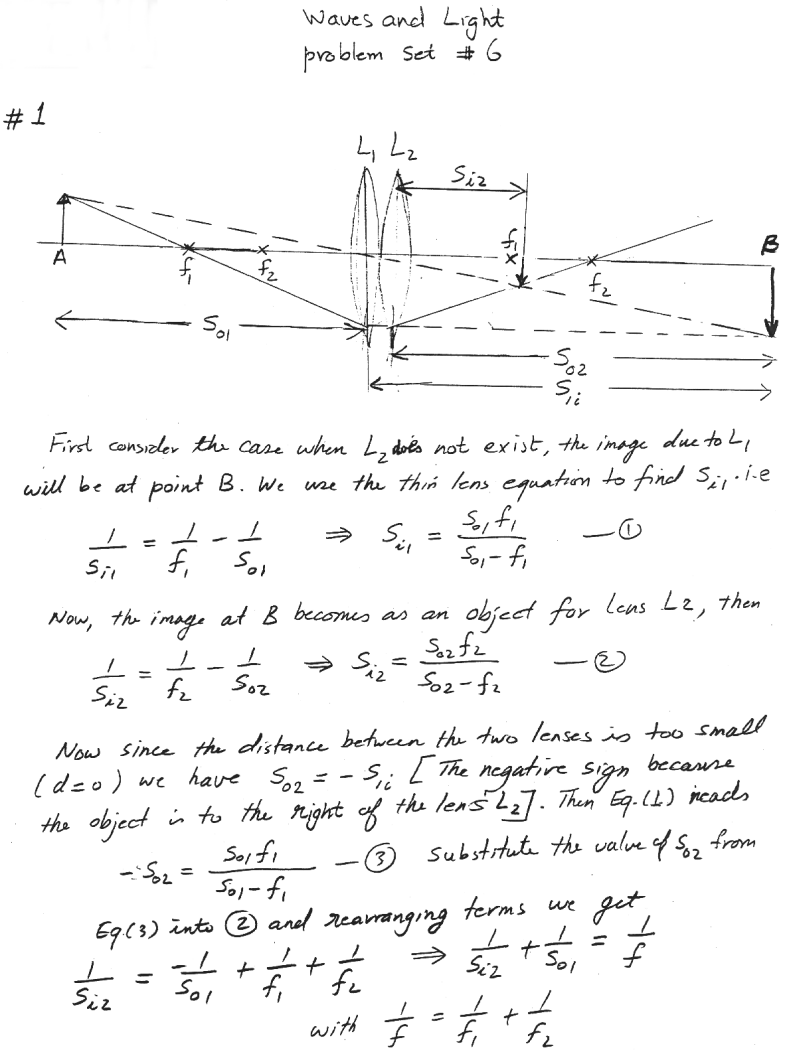 Waves and Light
problem set # 6
#1
L₁ L₂
S_i2
A
f₁
f₂
f₁
f₂
B
S_o1
S_o2
S_1i
First consider the case when L₂ does not exist, the image due to L₁
will be at point B. We use the thin lens equation to find S_i1. i.e
1/S_i1 = 1/f₁ - 1/S_o1 ⇒ S_i1 = S_o1 f₁ / (S_o1 - f₁) —①
Now, the image at B becomes as an object for lens L2, then
1/S_i2 = 1/f₂ - 1/S_o2 ⇒ S_i2 = S_o2 f₂ / (S_o2 - f₂) —②
Now since the distance between the two lenses is too small
(d=0) we have S_o2 = - S_1i [The negative sign because
the object is to the right of the lens L₂]. Then Eq.(1) reads
- S_o2 = S_o1 f₁ / (S_o1 - f₁) —③ substitute the value of S_o2 from
Eq.(3) into ② and rearranging terms we get
1/S_i2 = -1/S_o1 + 1/f₁ + 1/f₂ ⇒ 1/S_i2 + 1/S_o1 = 1/f
with 1/f = 1/f₁ + 1/f₂